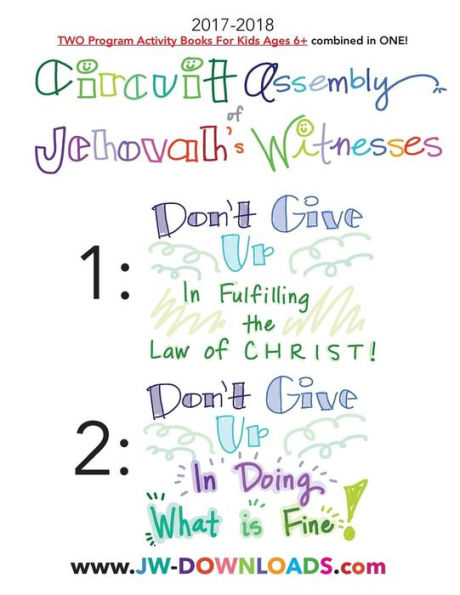 2017-2018
TWO Program Activity Books For Kids Ages 6+ combined in ONE!
Circuit Assembly
of
Jehovah's Witnesses
1:
Don't Give
Up
In Fulfilling
the
Law of CHRIST!
2:
Don't Give
Up
In Doing
What is Fine!
www.JW-DOWNLOADS.com